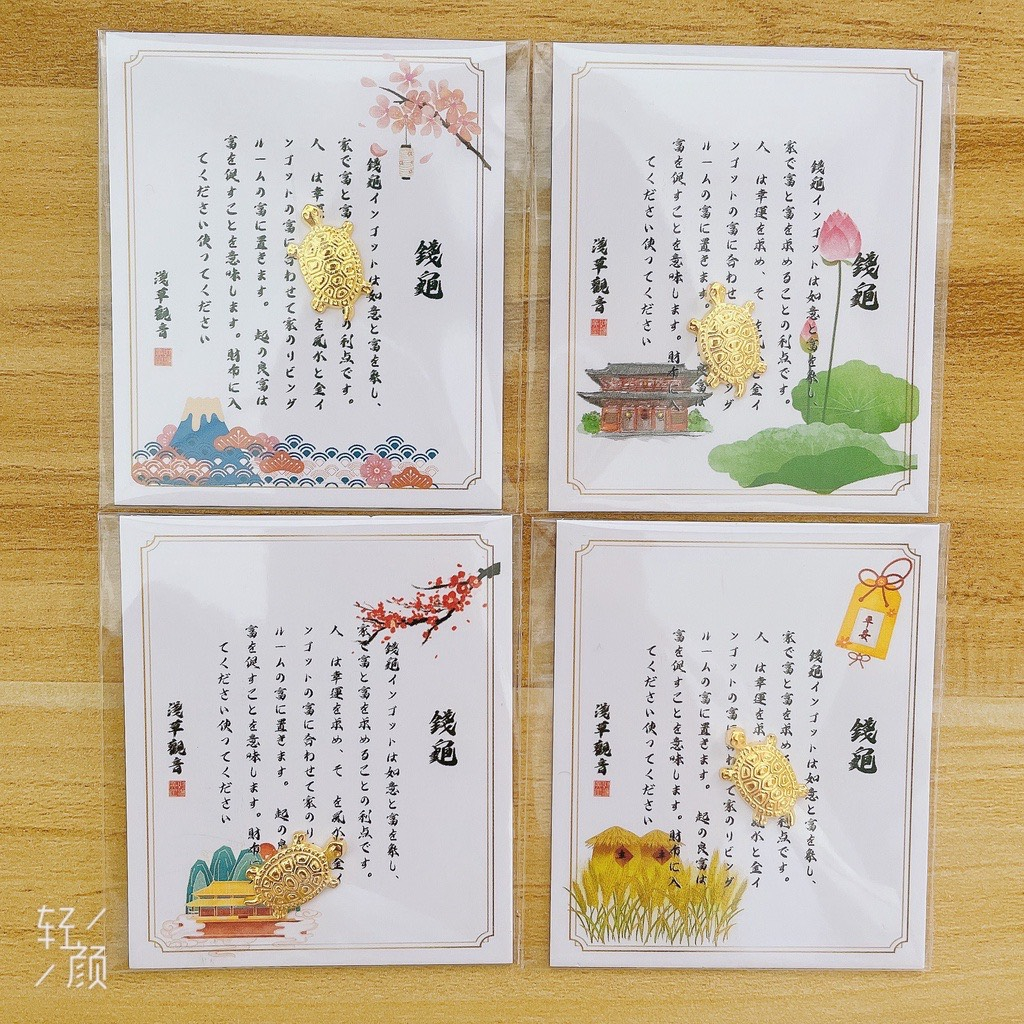 錢龜
錢龜インゴットは如意と富を象し、
家で富と富 の利点です。
人 は幸運 を風水と金イ
ンゴットの富に合わせて家のリビング
ルームの富に置きます。 起の良富は
富を促すことを意味します。財布に入
てください使ってください
淺草觀音
錢龜
錢龜インゴットは如意と富を象し、
家で富と富を求めることの利点です。
人 は幸運を求め、そ と金イ
ンゴットの富に合わ ング
ルームの富に置きます。 の良富は
富を促すことを意味します。財布に入
てください使ってください
淺草觀音
錢龜
錢龜インゴットは如意と富を象し、
家で富と富を求めることの利点です。
人 は幸運を求め、そ を風水 金イ
ンゴットの富に合わせて家のリ
ルームの富に置きます。 起の
富を促すことを意味します。財布
てください使ってください
淺草觀音
早安
錢龜
錢龜インゴットは如意と富を象し、
家で富と富を求め 利点です。
人 は幸運を求 風水と金イ
ンゴットの富に わせて家のリビング
ルームの富に置きます。 起の良富は
富を促すことを意味します。財布に入
てください使ってください
淺草觀音
轻颜